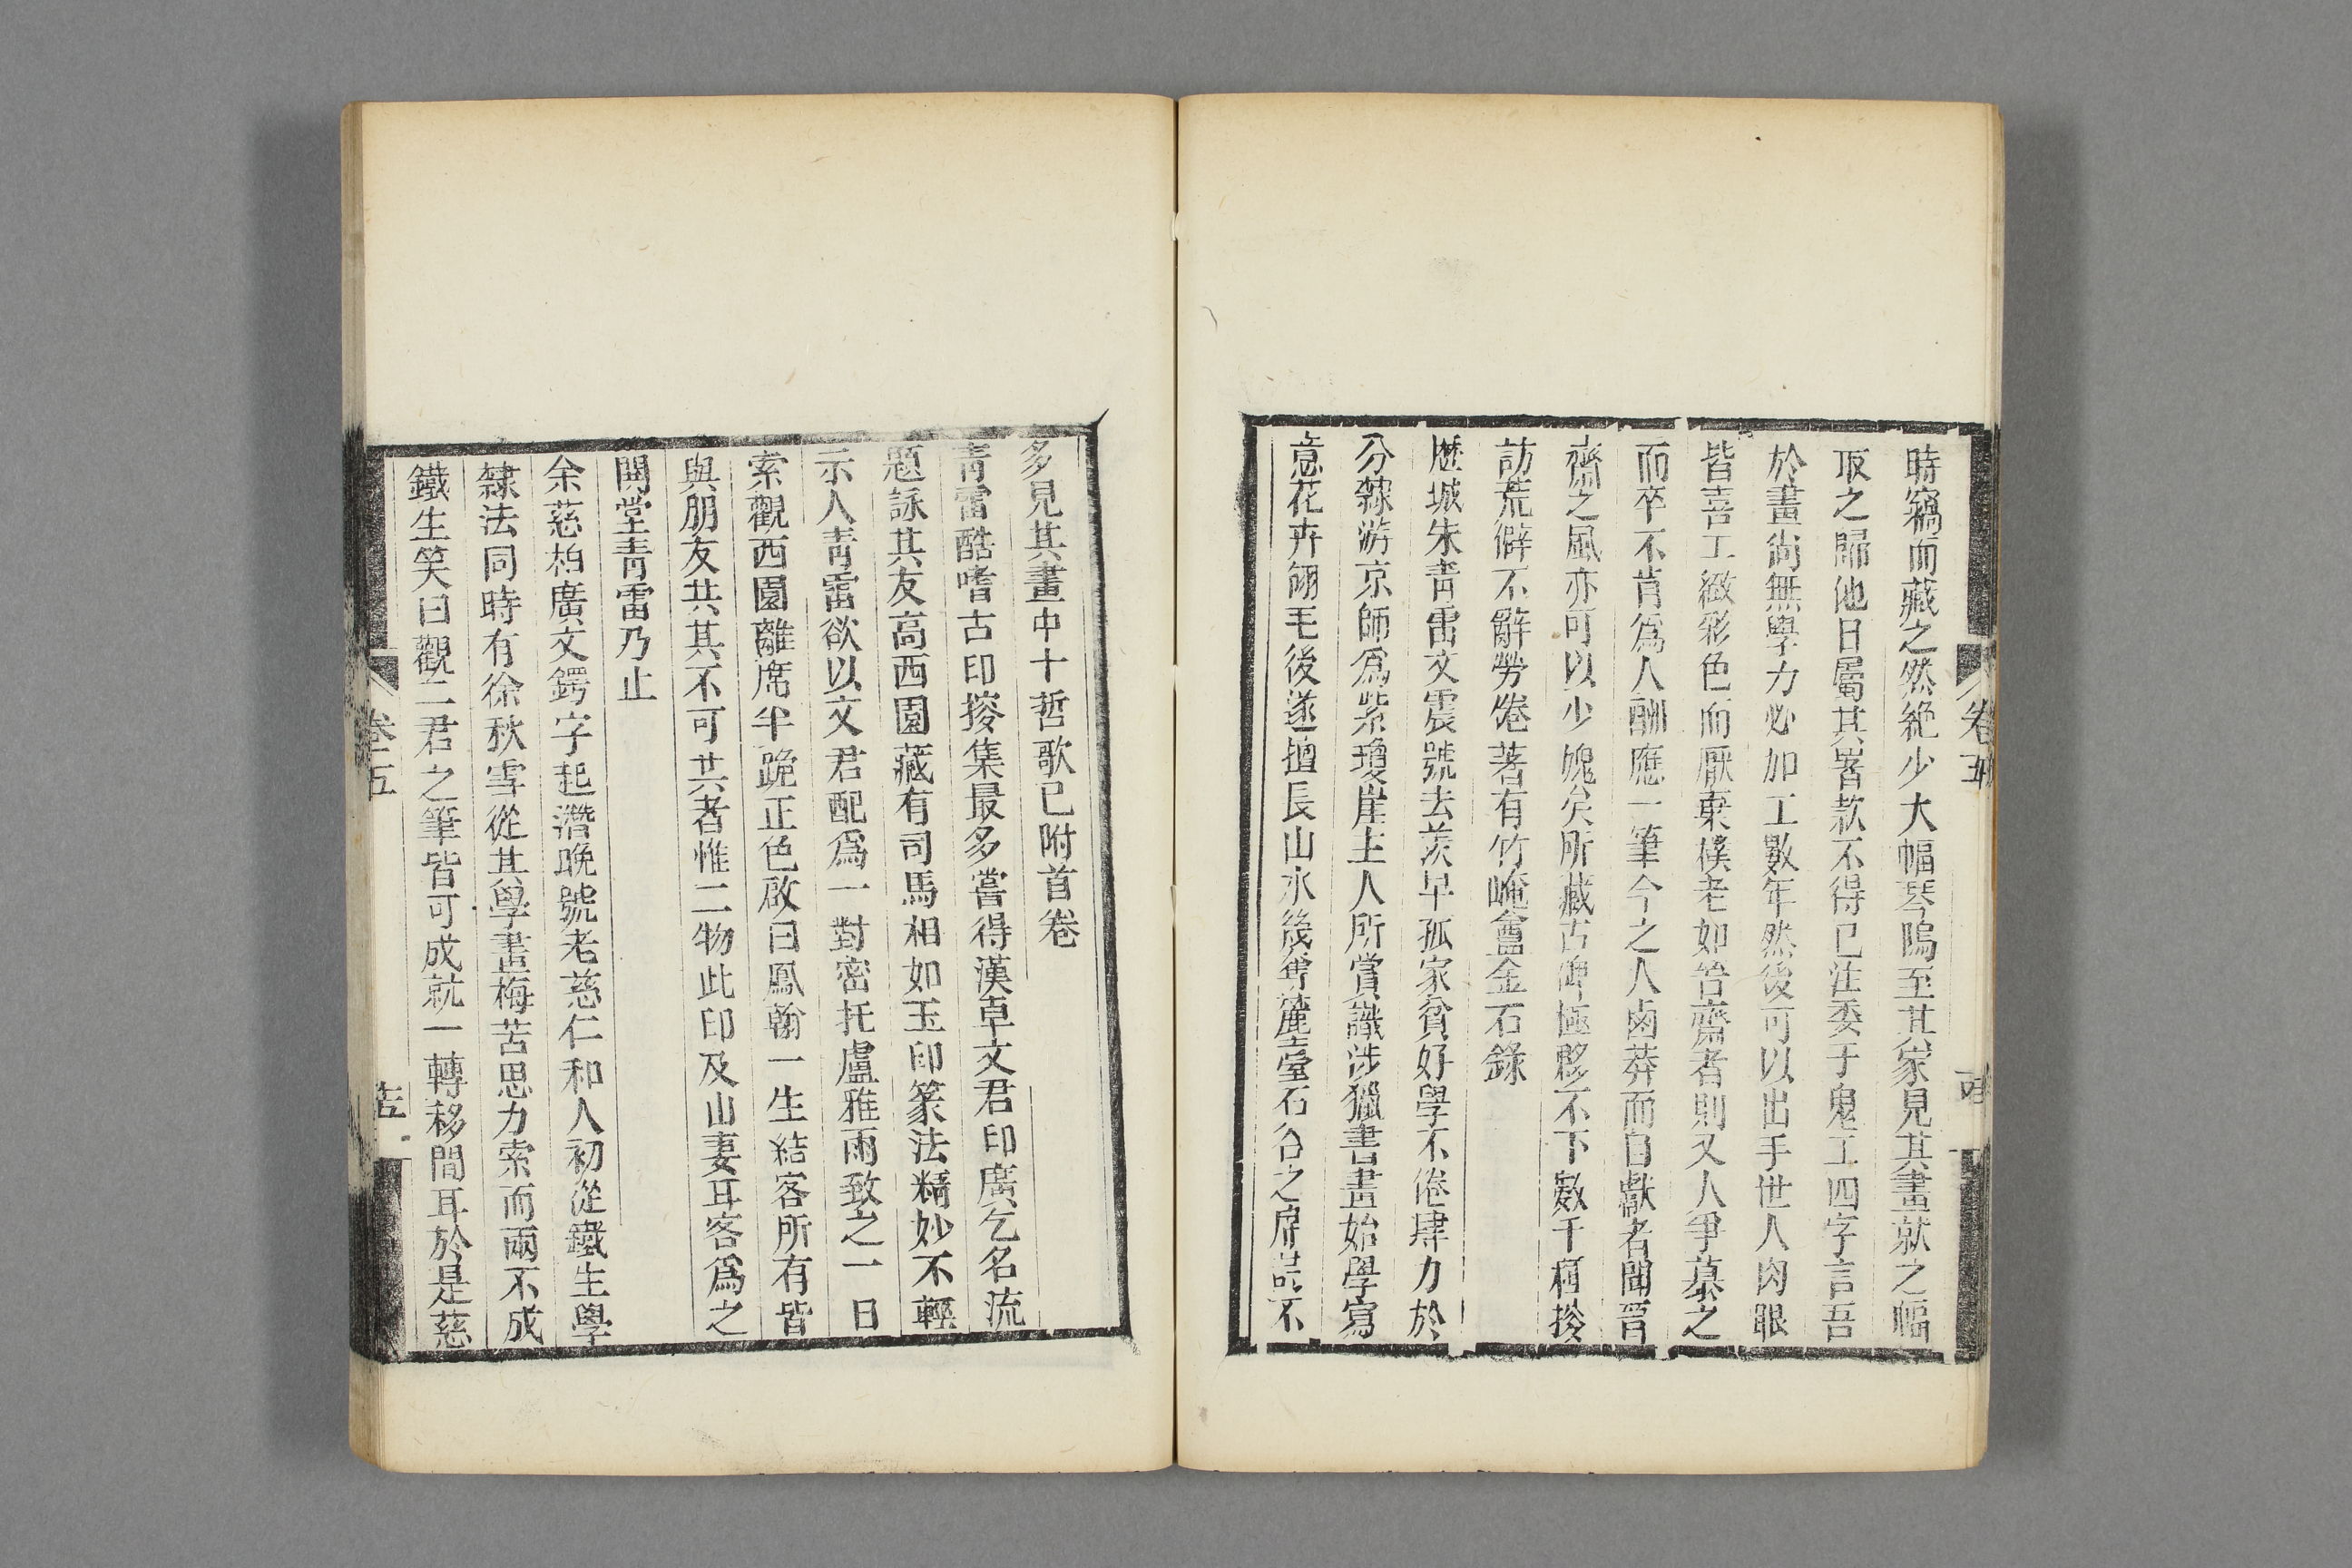 時竊而藏之然絶少大幅琴隖至其家見其畫就之幅
取之歸他日屬其署款不得已注委于鬼工四字言吾
於畫尚無學力必加工數年然後可以出手世人肉眼
皆喜工緻彩色而厭棄樸老如哈齋者則又人爭慕之
而卒不肯爲人酬應一筆今之人鹵莽而自獻者聞
齋之風亦可以少媿矣所藏古碑極夥不下數千種搜
訪荒僻不辭勞倦著有竹崦盦金石錄
歷城朱青雷文震號去羨早孤家貧好學不倦肆力於
分隸游京師爲紫瓊崖主人所賞識涉獵書畫始學寫
意花卉翎毛後遂擅長山水幾奪麓臺石谷之席然不
多見其畫中十哲歌已附首卷
青雷酷嗜古印搜集最多嘗得漢卓文君印廣乞名流
題詠其友高西園藏有司馬相如玉印篆法精妙不輕
示人青雷欲以文君配爲一對密托盧雅雨致之一日
索觀西園離席半跪正色啟曰鳳翰一生結客所有皆
與朋友共其不可共者惟二物此印及山妻耳客爲之
閧堂青雷乃止
余慈柏廣文鍔字起潛晚號老慈仁和人初從鐵生學
隸法同時有徐秋雪從其學畫梅苦思力索而兩不成
鐵生笑曰觀二君之筆皆可成就一轉移間耳於是慈
卷五
卷五